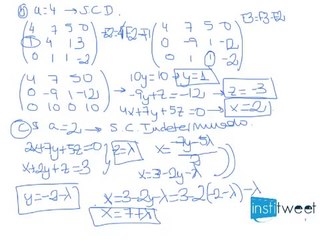 b) a=4 → S.C.D.
(4 7 5 0
1 4 1 3
0 1 1 -2) (4 7 5 0
0 -9 1 -12
0 1 1 -2) F3=F3-F2
(4 7 5 0
0 -9 1 -12
0 10 0 10) 10y=10 → y=1
-9y+z=-12 → z=-3
4x+7y+5z=0 → x=2
c) Si a=2 → S.C. Indeterminado
2x+7y+5z=0
x+2y+z=3
z=λ
x=-7y-5λ/2
x=3-2y-λ
y=-2-λ
x=3-2y-λ=3-2(-2-λ)-λ
x=7+λ
institweet